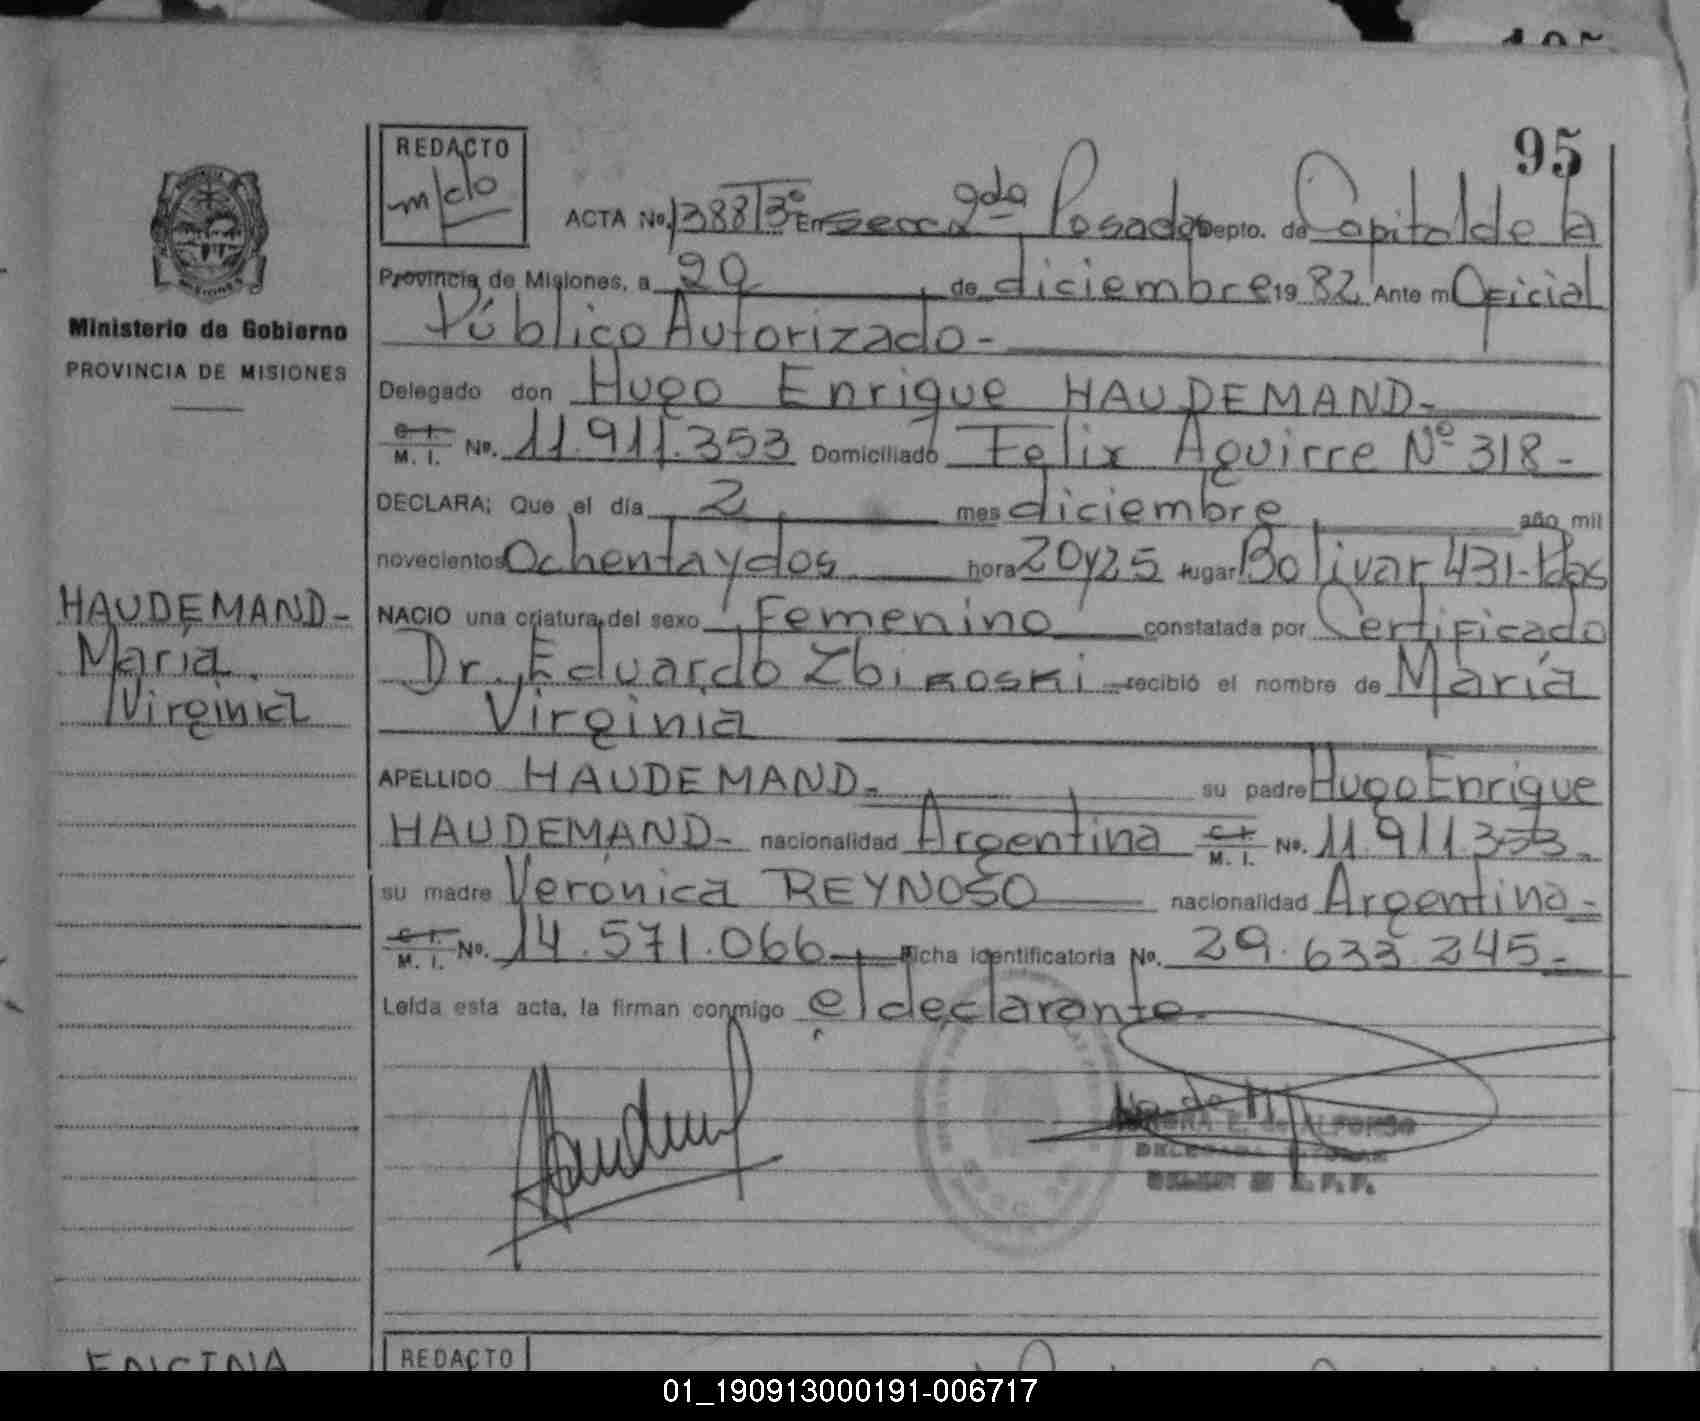 95
REDACTO
ACTA No. 1388 T 3º En secc 2da Posadas Depto. de Capital de la
Provincia de Misiones, a 29 de diciembre 19 82 Ante mi Oficial
Público Autorizado-
Delegado don Hugo Enrique HAUDEMAND-
C. I. M. I. No. 11.911.353 Domiciliado Felix Aguirre Nº 318-
DECLARA; Que el día 2 mes diciembre año mil
novecientos Ochenta y dos hora 20 y 25 lugar Bolivar 431-Pdas
NACIO una criatura del sexo Femenino constatada por Certificado
Dr. Eduardo recibió el nombre de María
Virginia
APELLIDO HAUDEMAND- su padre Hugo Enrique
HAUDEMAND- nacionalidad Argentina C. I. M. I. No. 11.911.353-
su madre Verónica REYNOSO nacionalidad Argentina-
C. I. M. I. No. 14.571.066 Ficha identificatoria No. 29.633.245-
Leída esta acta, la firman conmigo el declarante-
E. de ALFONSO
DELEGADA TITULAR
Ministerio de Gobierno
PROVINCIA DE MISIONES
HAUDEMAND-
María
Virginia
ENCINA
REDACTO
01_190913000191-006717